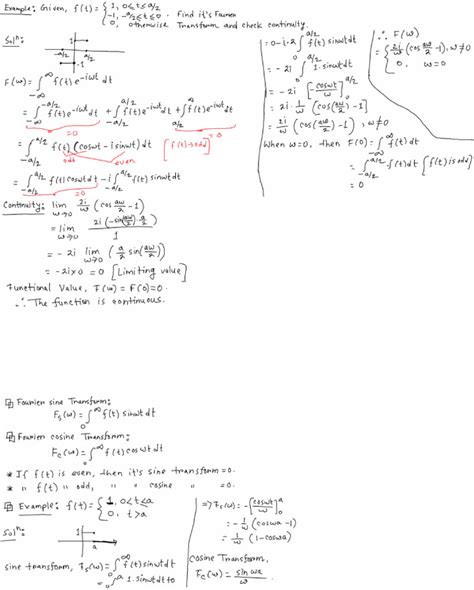 Example: Given, f(t) = { 1, 0<t≤a/2
-1, -a/2≤t≤0. Find it's Fourier
0, otherwise Transform and check continuity.
Solⁿ:
1
-a/2
a/2
-1
F(ω) = ∫_{-∞}^{∞} f(t) e^{-iωt} dt
= ∫_{-∞}^{-a/2} f(t) e^{-iωt} dt + ∫_{-a/2}^{a/2} f(t) e^{-iωt} dt + ∫_{a/2}^{∞} f(t) e^{-iωt} dt
=0
=0
= ∫_{-a/2}^{a/2} f(t) (cosωt - i sinωt) dt [f(t)→odd]
odd
even
= ∫_{-a/2}^{a/2} f(t) cosωt dt - i ∫_{-a/2}^{a/2} f(t) sinωt dt
=0
= 0 - i·2 ∫_0^{a/2} f(t) sinωt dt
= -2i ∫_0^{a/2} 1·sinωt dt
= -2i [-cosωt/ω]_0^{a/2}
= 2i·1/ω [cos(aω/2) - 1]
= 2i/ω (cos(aω/2) - 1), ω≠0
When ω=0, then F(0) = ∫_{-∞}^{∞} f(t) dt
= ∫_{-a/2}^{a/2} f(t) dt [f(t) is odd]
= 0
∴ F(ω)
= { 2i/ω (cos aω/2 - 1), ω≠0
0, ω=0
Continuity: lim_{ω→0} 2i/ω (cos aω/2 - 1)
= lim_{ω→0} 2i (-sin(aω/2)·a/2) / 1
= -2i lim_{ω→0} (a/2 sin(aω/2))
= -2i×0 = 0 [Limiting value]
Functional Value, F(ω) = F(0) = 0.
∴ The function is continuous.
Fourier sine Transform:
F_s(ω) = ∫_0^∞ f(t) sinωt dt
Fourier cosine Transform:
F_c(ω) = ∫_0^∞ f(t) cosωt dt
* If f(t) is even, then it's sine transform = 0.
* " f(t) " odd, " " cosine " = 0.
Example: f(t) = { 1, 0<t≤a
0, t>a
Solⁿ:
a
sine transform, F_s(ω) = ∫_0^∞ f(t) sinωt dt
= ∫_0^a 1·sinωt dt+0
⇒ F_s(ω) = -[cosωt/ω]_0^a
= -1/ω (cosωa - 1)
= 1/ω (1 - cosωa)
cosine Transform,
F_c(ω) = sin ωa/ω.